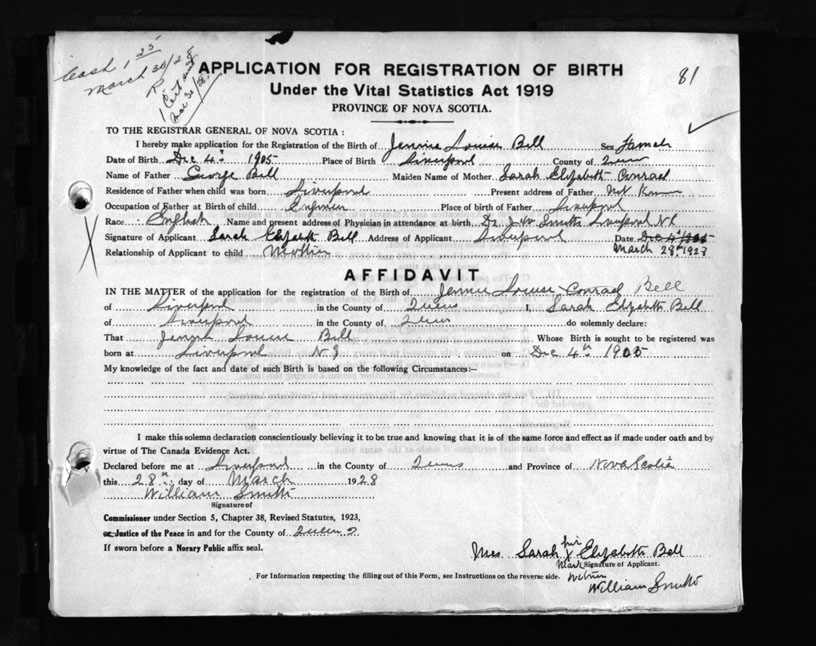 Cash 1 25
March 30/28
1 Cert and
Mar 30/28
81
APPLICATION FOR REGISTRATION OF BIRTH
Under the Vital Statistics Act 1919
PROVINCE OF NOVA SCOTIA.
TO THE REGISTRAR GENERAL OF NOVA SCOTIA:
I hereby make application for the Registration of the Birth of Jennie Louise Bell Sex Female
Date of Birth Dec 4th 1905 Place of Birth Liverpool County of Queens
Name of Father George Bell Maiden Name of Mother Sarah Elizabeth Conrad
Residence of Father when child was born Liverpool Present address of Father Not Known
Occupation of Father at Birth of child Engineer Place of birth of Father Liverpool
Race English Name and present address of Physician in attendance at birth Dr. J W Smith Liverpool N.S
Signature of Applicant Sarah Elizabeth Bell Address of Applicant Liverpool Date Dec 4th 1905
Relationship of Applicant to child Mother March 28th 1928
AFFIDAVIT
IN THE MATTER of the application for the registration of the Birth of Jennie Louise Conrad Bell
of Liverpool in the County of Queens I, Sarah Elizabeth Bell
of Liverpool in the County of Queens do solemnly declare:
That Jennie Louise Bell Whose Birth is sought to be registered was
born at Liverpool N.S on Dec 4th 1905
My knowledge of the fact and date of such Birth is based on the following Circumstances:—
I make this solemn declaration conscientiously believing it to be true and knowing that it is of the same force and effect as if made under oath and by
virtue of The Canada Evidence Act.
Declared before me at Liverpool in the County of Queens and Province of Nova Scotia
this 28th day of March 1928
William Smith
Signature of
Commissioner under Section 5, Chapter 38, Revised Statutes, 1923,
or Justice of the Peace in and for the County of Queens
If sworn before a Norary Public affix seal.
Mrs Sarah her X Elizabeth Bell
Mark Signature of Applicant.
For Information respecting the filling out of this Form, see Instructions on the reverse side. Witness
William Smith